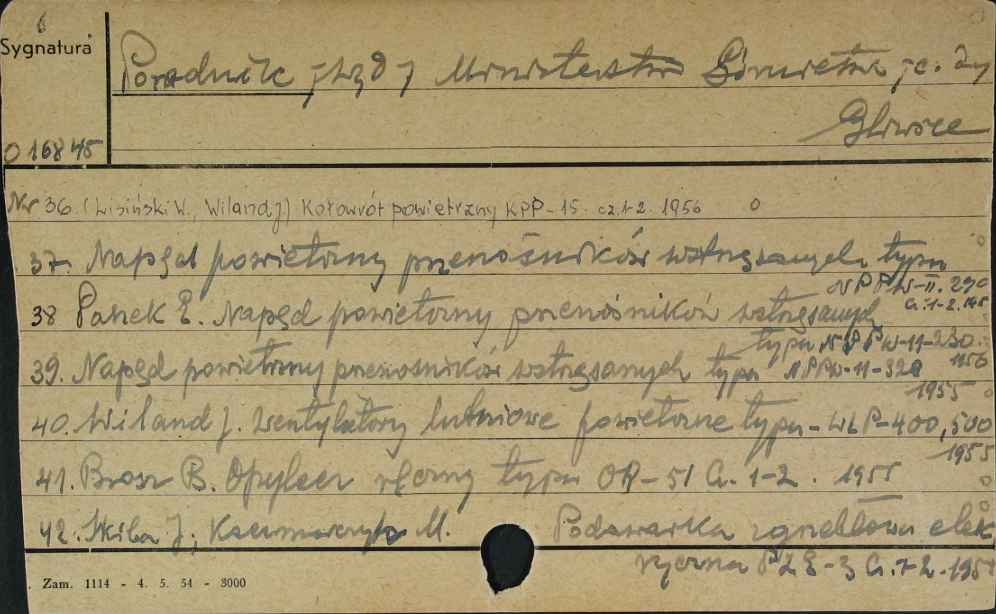 6
Sygnatura
Poradnik Ministerstwa Górnictwa
Gliwice
016845
Nr 36. (Lisiński W., Wiland J) Kołowrót powietrzny KPP-15. cz.1-2. 1956 o
37. Napęd powietrzny przenośników wstrząsanych typu
NPPW-II. 290
Cz. 1-2. 195
38 Panek E. Napęd powietrzny przenośników wstrząsanych
typu NPPW-11-230.
1956
39. Napęd powietrzny przenośników wstrząsanych typu NPPW-11-320
1955 o
40. Wiland J. Wentylatory lutniowe powietrzne typu - WLP-400, 500
1955
41. Brosz B. Opylacz ręczny typu OR-51 Cz. 1-2. 1955 o
42. Skiba J; Kazimorczyk M. Podswarka zgnebłowa elek
ryczna PZE-3 Cz. 1-2. 195
. Zam. 1114 - 4. 5. 54 - 3000